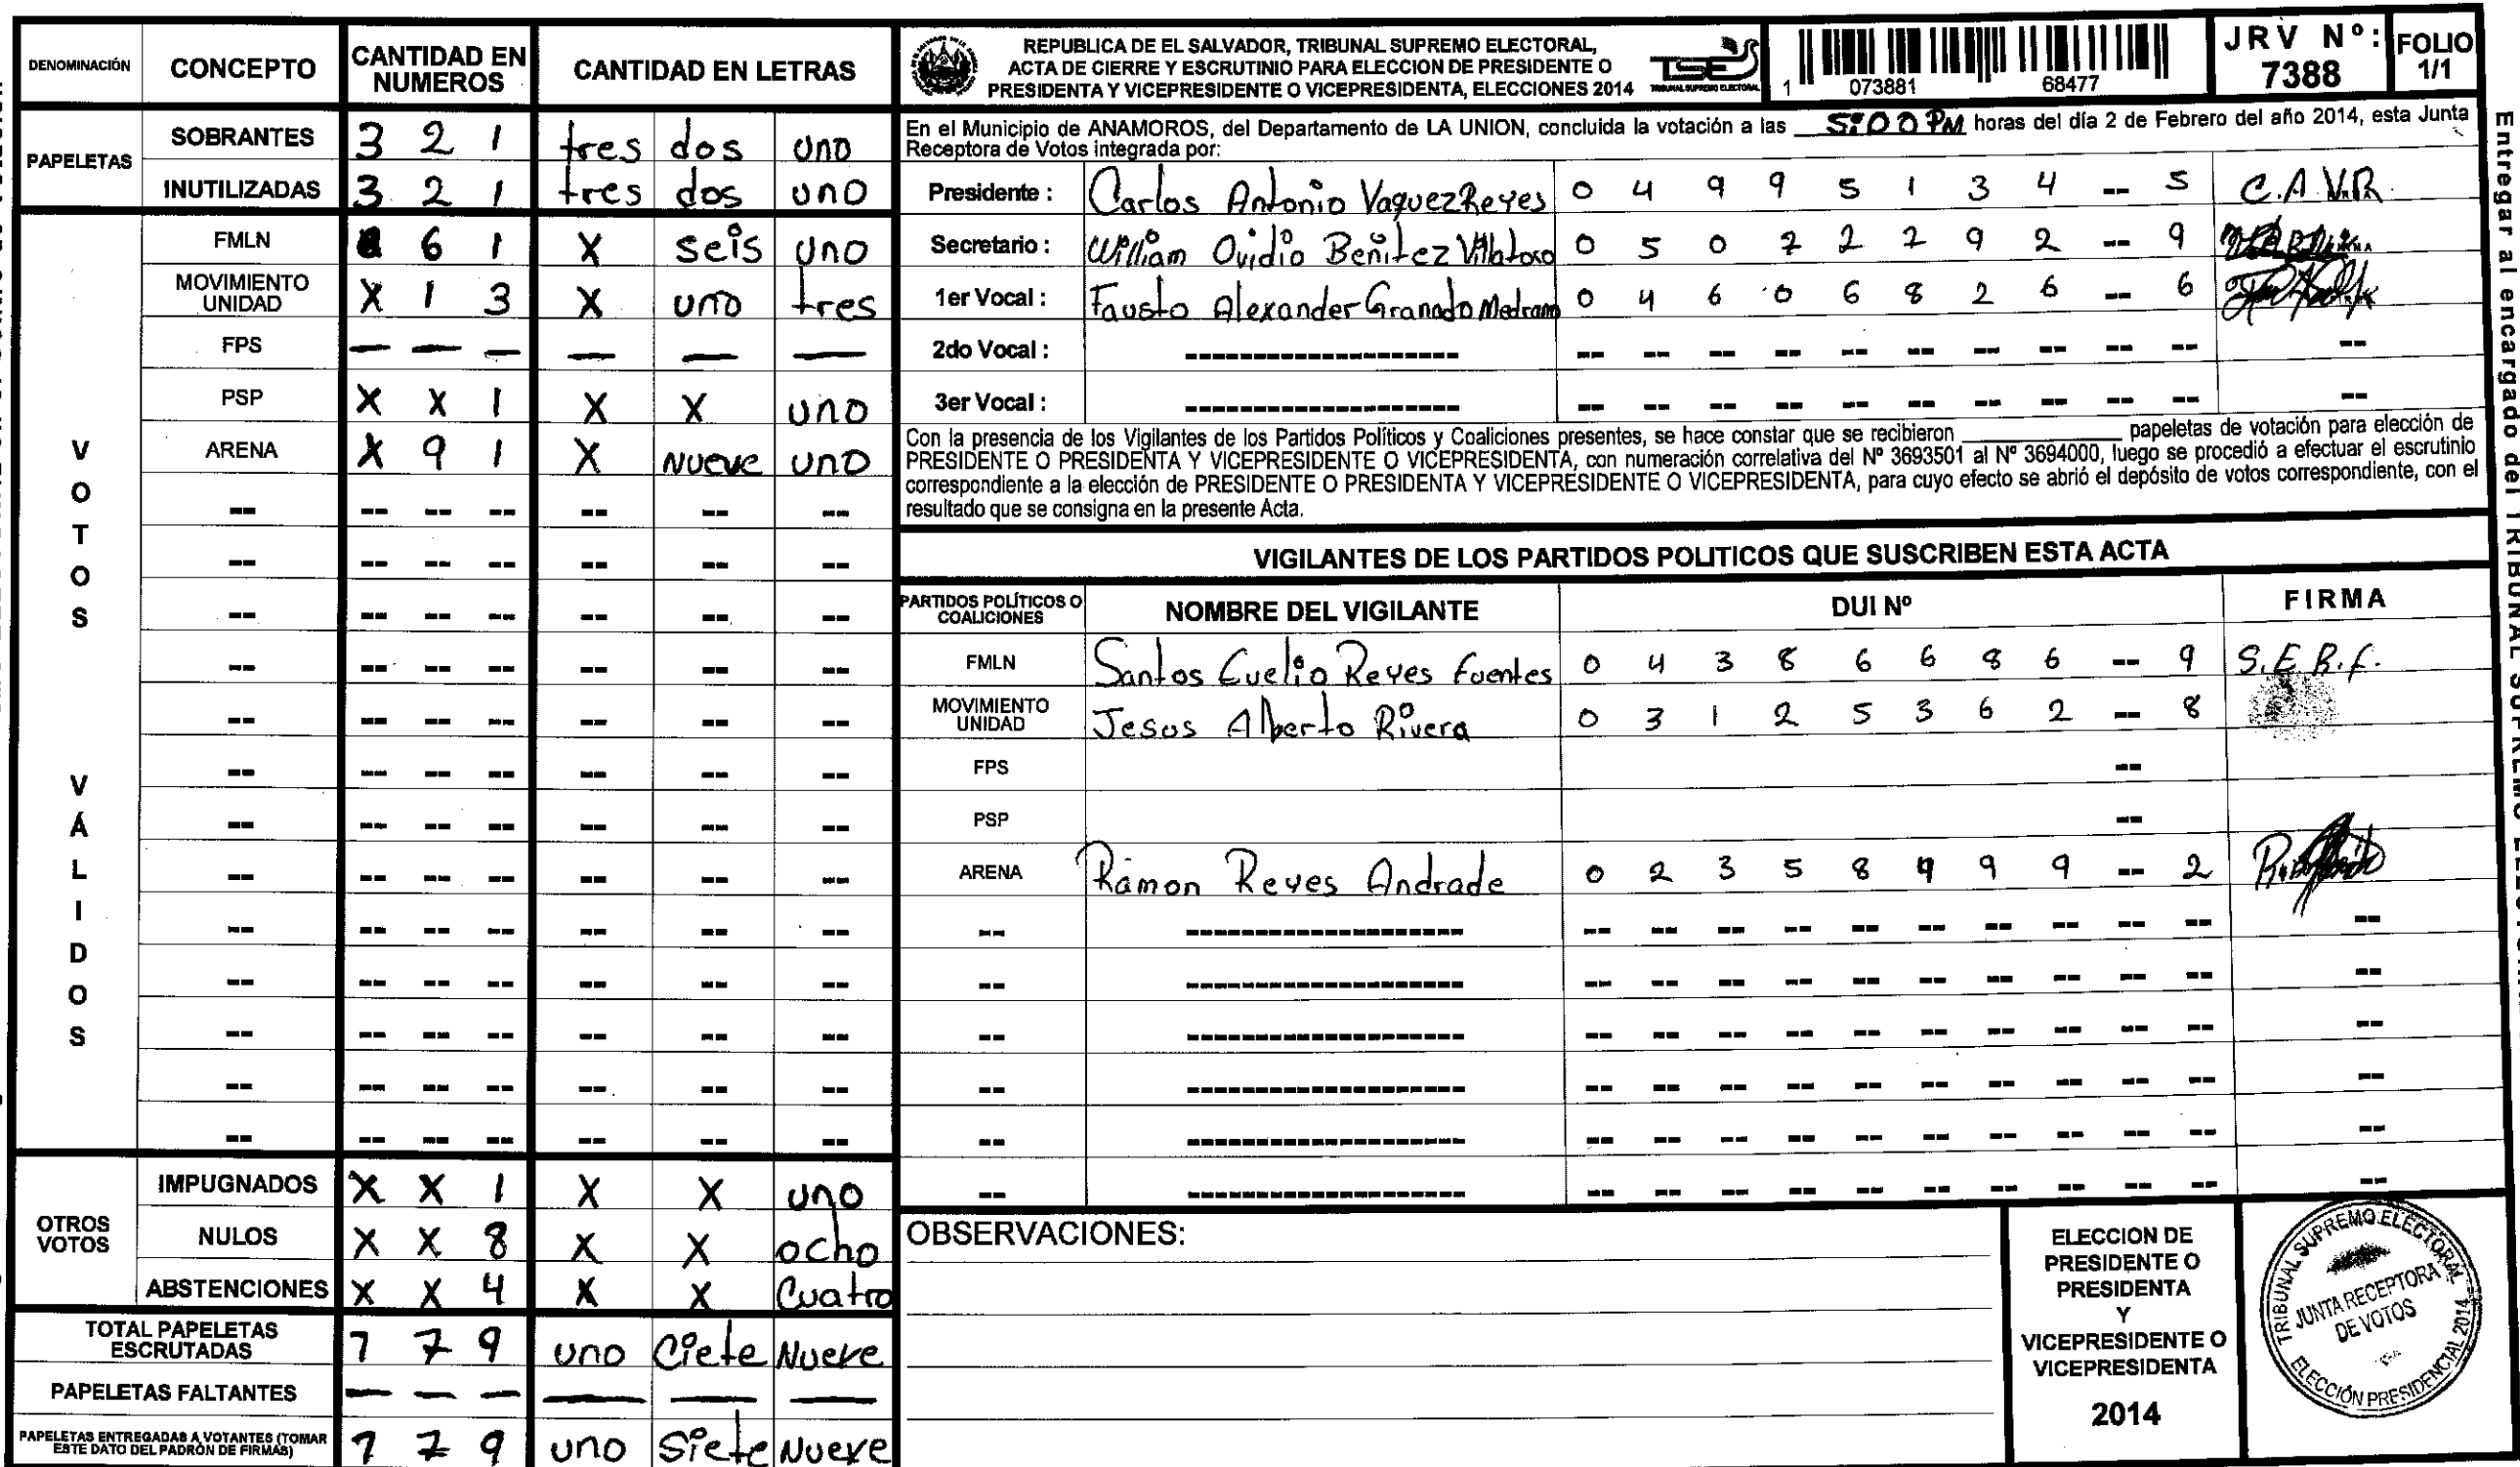 DENOMINACIÓN CONCEPTO CANTIDAD EN NUMEROS CANTIDAD EN LETRAS
PAPELETAS
SOBRANTES 3 2 1 tres dos uno
INUTILIZADAS 3 2 1 tres dos uno
VOTOS VÁLIDOS
FMLN 6 1 X seis uno
MOVIMIENTO UNIDAD X 1 3 X uno tres
FPS — — — — — —
PSP X X 1 X X uno
ARENA X 9 1 X Nueve uno
-- -- -- -- -- -- --
-- -- -- -- -- -- --
-- -- -- -- -- -- --
-- -- -- -- -- -- --
-- -- -- -- -- -- --
-- -- -- -- -- -- --
-- -- -- -- -- -- --
-- -- -- -- -- -- --
-- -- -- -- -- -- --
-- -- -- -- -- -- --
-- -- -- -- -- -- --
-- -- -- -- -- -- --
-- -- -- -- -- -- --
OTROS VOTOS
IMPUGNADOS X X 1 X X uno
NULOS X X 8 X X ocho
ABSTENCIONES X X 4 X X Cuatro
TOTAL PAPELETAS ESCRUTADAS 1 7 9 uno Ciete Nueve
PAPELETAS FALTANTES — — — — — —
PAPELETAS ENTREGADAS A VOTANTES (TOMAR ESTE DATO DEL PADRÓN DE FIRMAS) 1 7 9 uno Siete Nueve
REPUBLICA DE EL SALVADOR, TRIBUNAL SUPREMO ELECTORAL,
ACTA DE CIERRE Y ESCRUTINIO PARA ELECCION DE PRESIDENTE O
PRESIDENTA Y VICEPRESIDENTE O VICEPRESIDENTA, ELECCIONES 2014
TSE
TRIBUNAL SUPREMO ELECTORAL
1 073881 68477
JRV Nº: 7388
FOLIO 1/1
En el Municipio de ANAMOROS, del Departamento de LA UNION, concluida la votación a las 5:00 PM horas del día 2 de Febrero del año 2014, esta Junta
Receptora de Votos integrada por:
Presidente : Carlos Antonio Vaquez Reyes 0 4 9 9 5 1 3 4 -- 5 C.A.V.R.
Secretario : William Ovidio Benitez Villatoro 0 5 0 7 2 2 9 2 -- 9
1er Vocal : Fausto Alexander Granado Medrano 0 4 6 0 6 8 2 6 -- 6
2do Vocal : -------------------- -- -- -- -- -- -- -- -- -- -- --
3er Vocal : -------------------- -- -- -- -- -- -- -- -- -- -- --
Con la presencia de los Vigilantes de los Partidos Políticos y Coaliciones presentes, se hace constar que se recibieron ________ papeletas de votación para elección de
PRESIDENTE O PRESIDENTA Y VICEPRESIDENTE O VICEPRESIDENTA, con numeración correlativa del Nº 3693501 al Nº 3694000, luego se procedió a efectuar el escrutinio
correspondiente a la elección de PRESIDENTE O PRESIDENTA Y VICEPRESIDENTE O VICEPRESIDENTA, para cuyo efecto se abrió el depósito de votos correspondiente, con el
resultado que se consigna en la presente Acta.
VIGILANTES DE LOS PARTIDOS POLITICOS QUE SUSCRIBEN ESTA ACTA
PARTIDOS POLÍTICOS O COALICIONES NOMBRE DEL VIGILANTE DUI Nº FIRMA
FMLN Santos Evelio Reyes Fuentes 0 4 3 8 6 6 8 6 -- 9 S.E.R.F.
MOVIMIENTO UNIDAD Jesus Alberto Rivera 0 3 1 2 5 3 6 2 -- 8
FPS --
PSP --
ARENA Ramon Reyes Andrade 0 2 3 5 8 9 9 9 -- 2
-- -------------------- -- -- -- -- -- -- -- -- -- -- --
-- -------------------- -- -- -- -- -- -- -- -- -- -- --
-- -------------------- -- -- -- -- -- -- -- -- -- -- --
-- -------------------- -- -- -- -- -- -- -- -- -- -- --
-- -------------------- -- -- -- -- -- -- -- -- -- -- --
-- -------------------- -- -- -- -- -- -- -- -- -- -- --
OBSERVACIONES:
ELECCION DE
PRESIDENTE O
PRESIDENTA
Y
VICEPRESIDENTE O
VICEPRESIDENTA
2014
TRIBUNAL SUPREMO ELECTORAL
JUNTA RECEPTORA
DE VOTOS
ELECCIÓN PRESIDENCIAL 2014
Entregar al encargado del TRIBUNAL SUPREMO